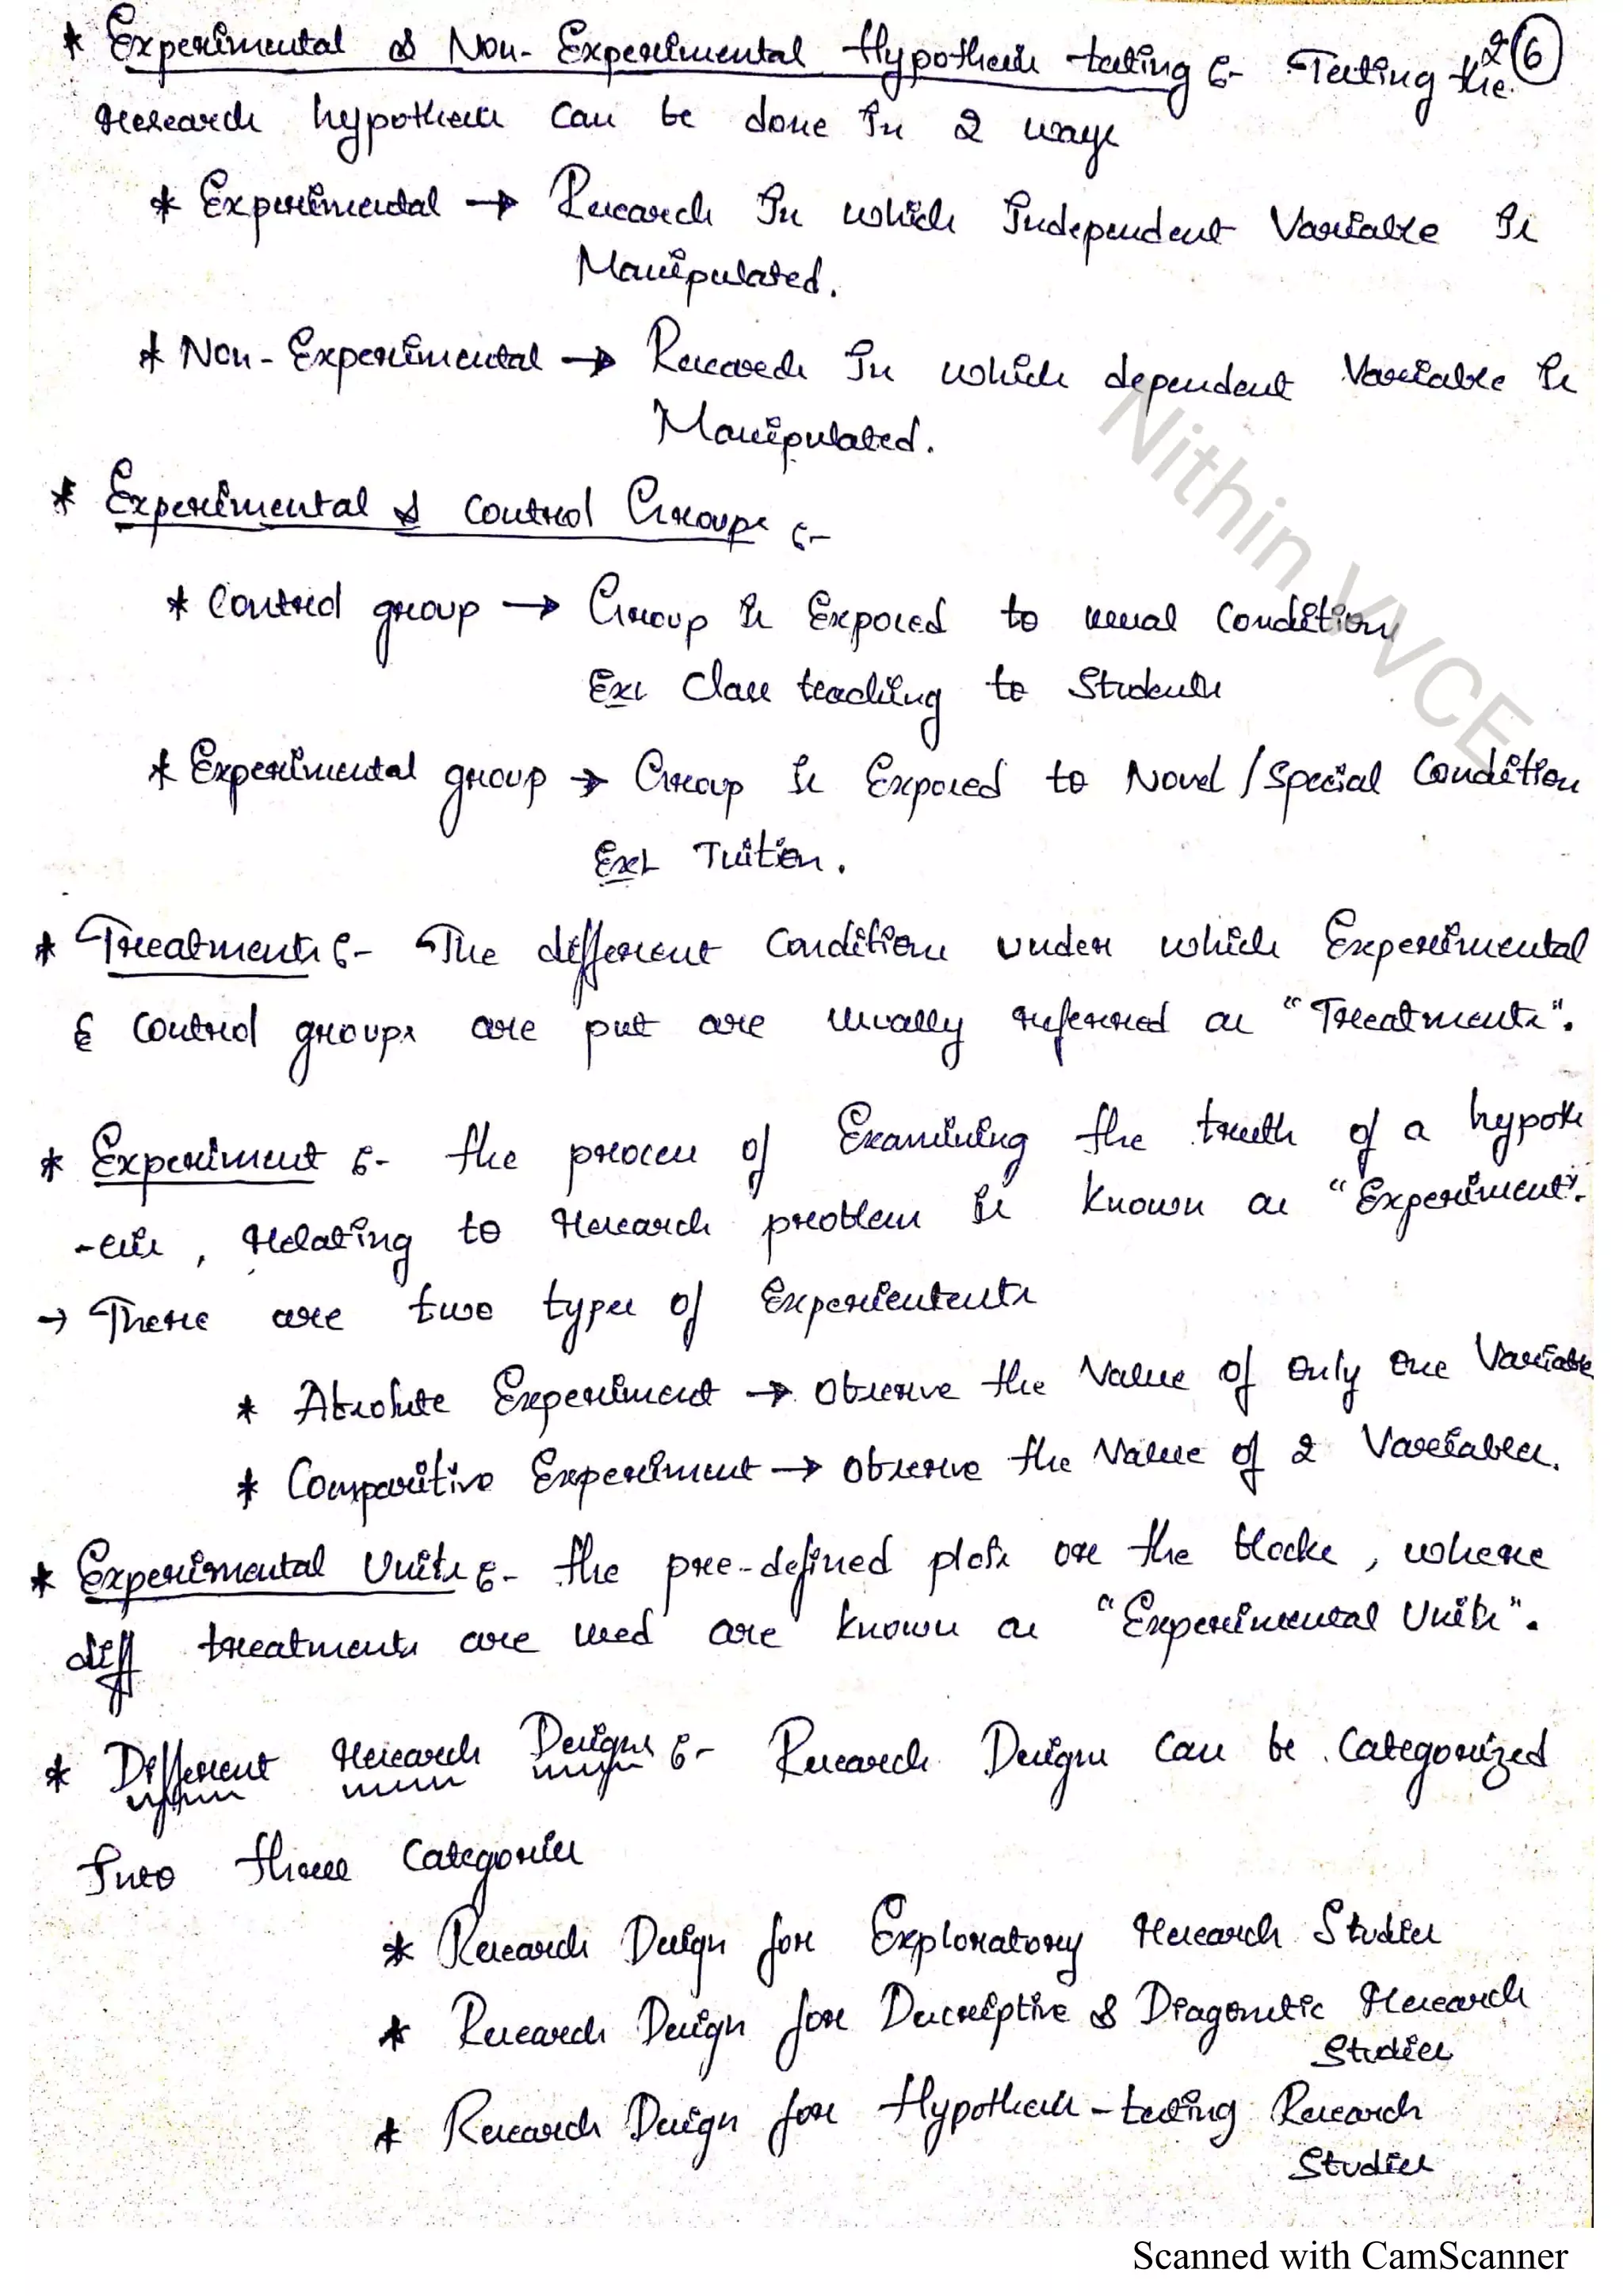 * Experimental & Non-Experimental Hypothesis testing :- Testing the 2 6
research hypothesis can be done in 2 ways
* Experimental → Research in which Independent Variable is
Manipulated.
* Non-Experimental → Research in which dependent Variable is
Manipulated.
* Experimental & Control Groups :-
* Control group → Group is Exposed to usual Condition
Ex: Class teaching to Students
* Experimental group → Group is Exposed to Novel/Special Condition
Ex: Tuition.
* Treatments :- The different Conditions under which Experimental
& Control groups are put are usually referred as "Treatments".
* Experiment :- the process of Examining the truth of a hypoth
-esis, relating to research problem is known as "Experiment".
→ There are two types of Experientents
* Absolute Experiment → observe the Value of only one Variable
* Comparitive Experiment → observe the Value of 2 Variables.
* Experimental Units :- the pre-defined plots or the blocks, where
diff treatments are used are known as "Experimental Units".
* Different research Designs :- Research Designs can be Categorized
Into three Categories
* Research Design for Exploratory research Studies
* Research Design for Descriptive & Diagonstic Research
Studies
* Research Design for Hypothesis-testing Research
Studies
Nithin VVCE
Scanned with CamScanner